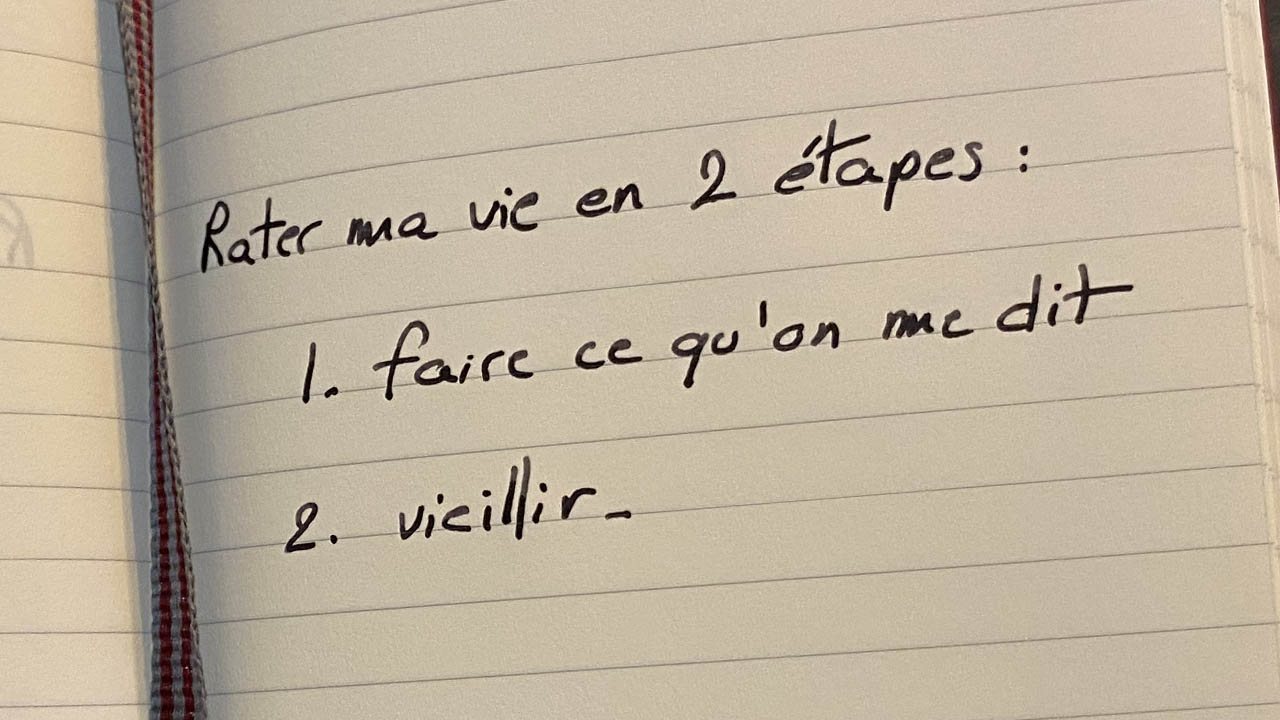 Rater ma vie en 2 étapes :
1. faire ce qu'on me dit
2. vieillir_